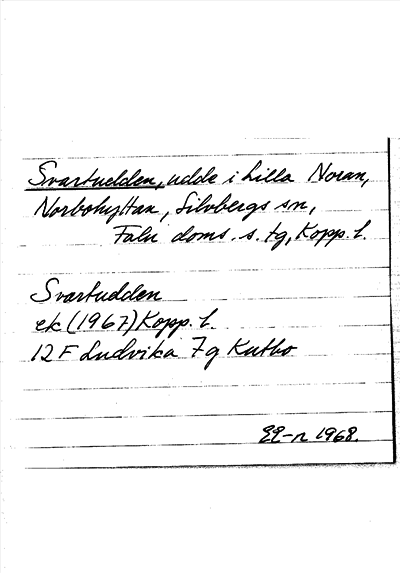 Svartudden, udde i Lilla Noran,
Norbohyttan, Silvbergs sn,
Falu doms. s. tg, Kopp. l.
Svartudden
ek (1967) Kopp. l.
12 F Ludvika 7 g Kutbo
1968.